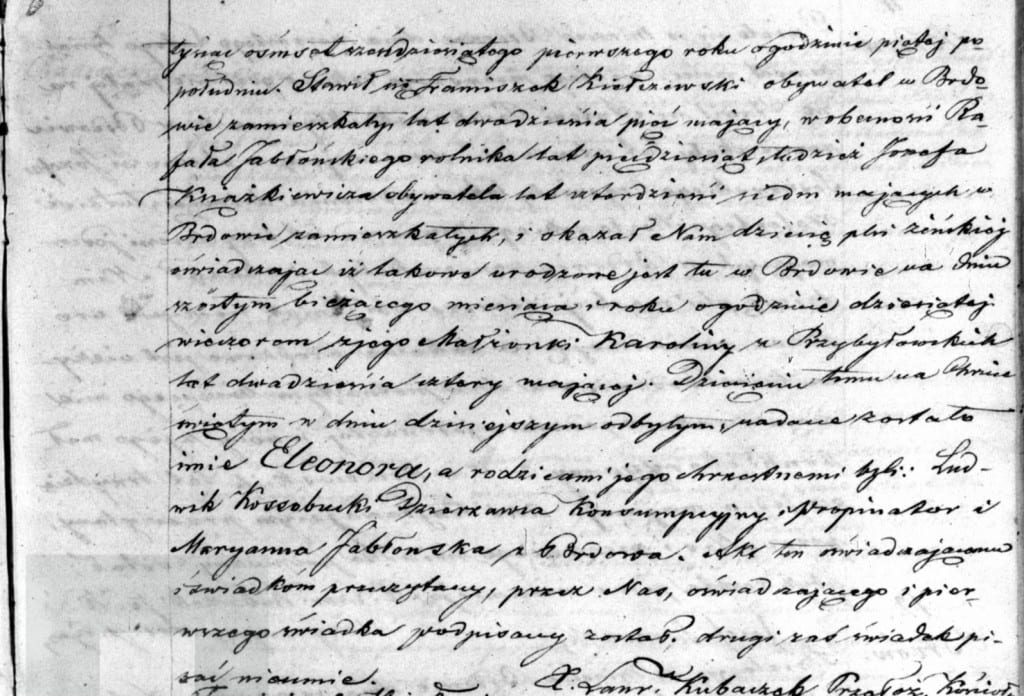 tysiąc ośmset sześdziesiątego pierwszego roku o godzinie piątej po
południu. Stawił się Franciszek Kiełczewski obywatel w Brdo-
wie zamieszkały, lat dwadzieścia pięć mający, w obecności Ra-
fała Jabłońskiego rolnika lat pięćdziesiąt, tudzież Józefa
Książkiewicza obywatela lat czterdzieści siedm mających w
Brdowie zamieszkałych, i okazał Nam dziecię płci żeńskiej
oświadczając iż takowe urodzone jest tu w Brdowie na dniu
szóstym bieżącego miesiąca i roku o godzinie dziesiątej
wieczorem z jego Małżonki Karoliny z Przybyłowskich
lat dwadzieścia cztery mającej. Dziecięciu temu na Chrzcie
świętym w dniu dzisiejszym odbytym, nadane zostało
imie Eleonora, a rodzicami jego chrzestnemi byli: Lud-
wik Kossobucki Dzierżawca Konsumpcyjny i Propinator i
Maryanna Jabłońska z Brdowa. Akt ten oświadczającemu
i świadkom przeczytany, przez Nas, oświadczającego i pier-
wszego świadka podpisany został, drugi zaś świadek pi-
sać nieumie.
X. Laur. Kubaczek Przełoż.